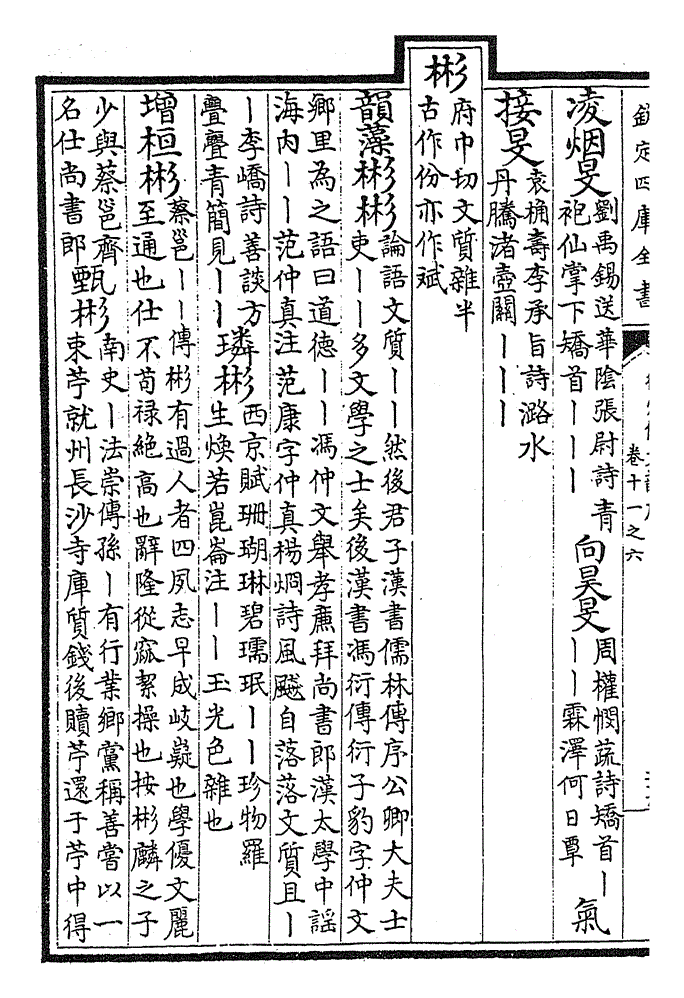 欽定四庫全書
卷十一之六
凌烟旻
劉禹錫送華陰張尉詩青
袍仙掌下矯首丨丨丨
向昊旻
周權憫蔬詩矯首丨
丨丨霖澤何日覃
氣
接旻
袁桷壽李承旨詩潞水
丹騰渚壺關丨丨丨
彬
府巾切文質雜半
古作份亦作斌
韻藻彬彬
論語文質丨丨然後君子漢書儒林傳序公卿大夫士
吏丨丨多文學之士矣後漢書馮衍傳衍子豹字仲文
鄉里為之語曰道德丨丨馮仲文舉孝廉拜尚書郎漢太學中謡
海内丨丨范仲真注范康字仲真楊烱詩風飈自落落文質且丨
丨李嶠詩善談方
亹亹青簡見丨丨
璘彬
西京賦珊瑚琳碧瓀珉丨丨珍物羅
生煥若崑崙注丨丨玉光色雜也
增桓彬
蔡邕丨丨傳彬有過人者四夙志早成岐嶷也學優文麗
至通也仕不苟禄絶高也辭隆從窳絜操也按彬麟之子
少與蔡邕齊
名仕尚書郎
甄彬
南史丨法崇傳孫丨有行業鄉黨稱善嘗以一
束苧就州長沙寺庫質錢後贖苧還于苧中得